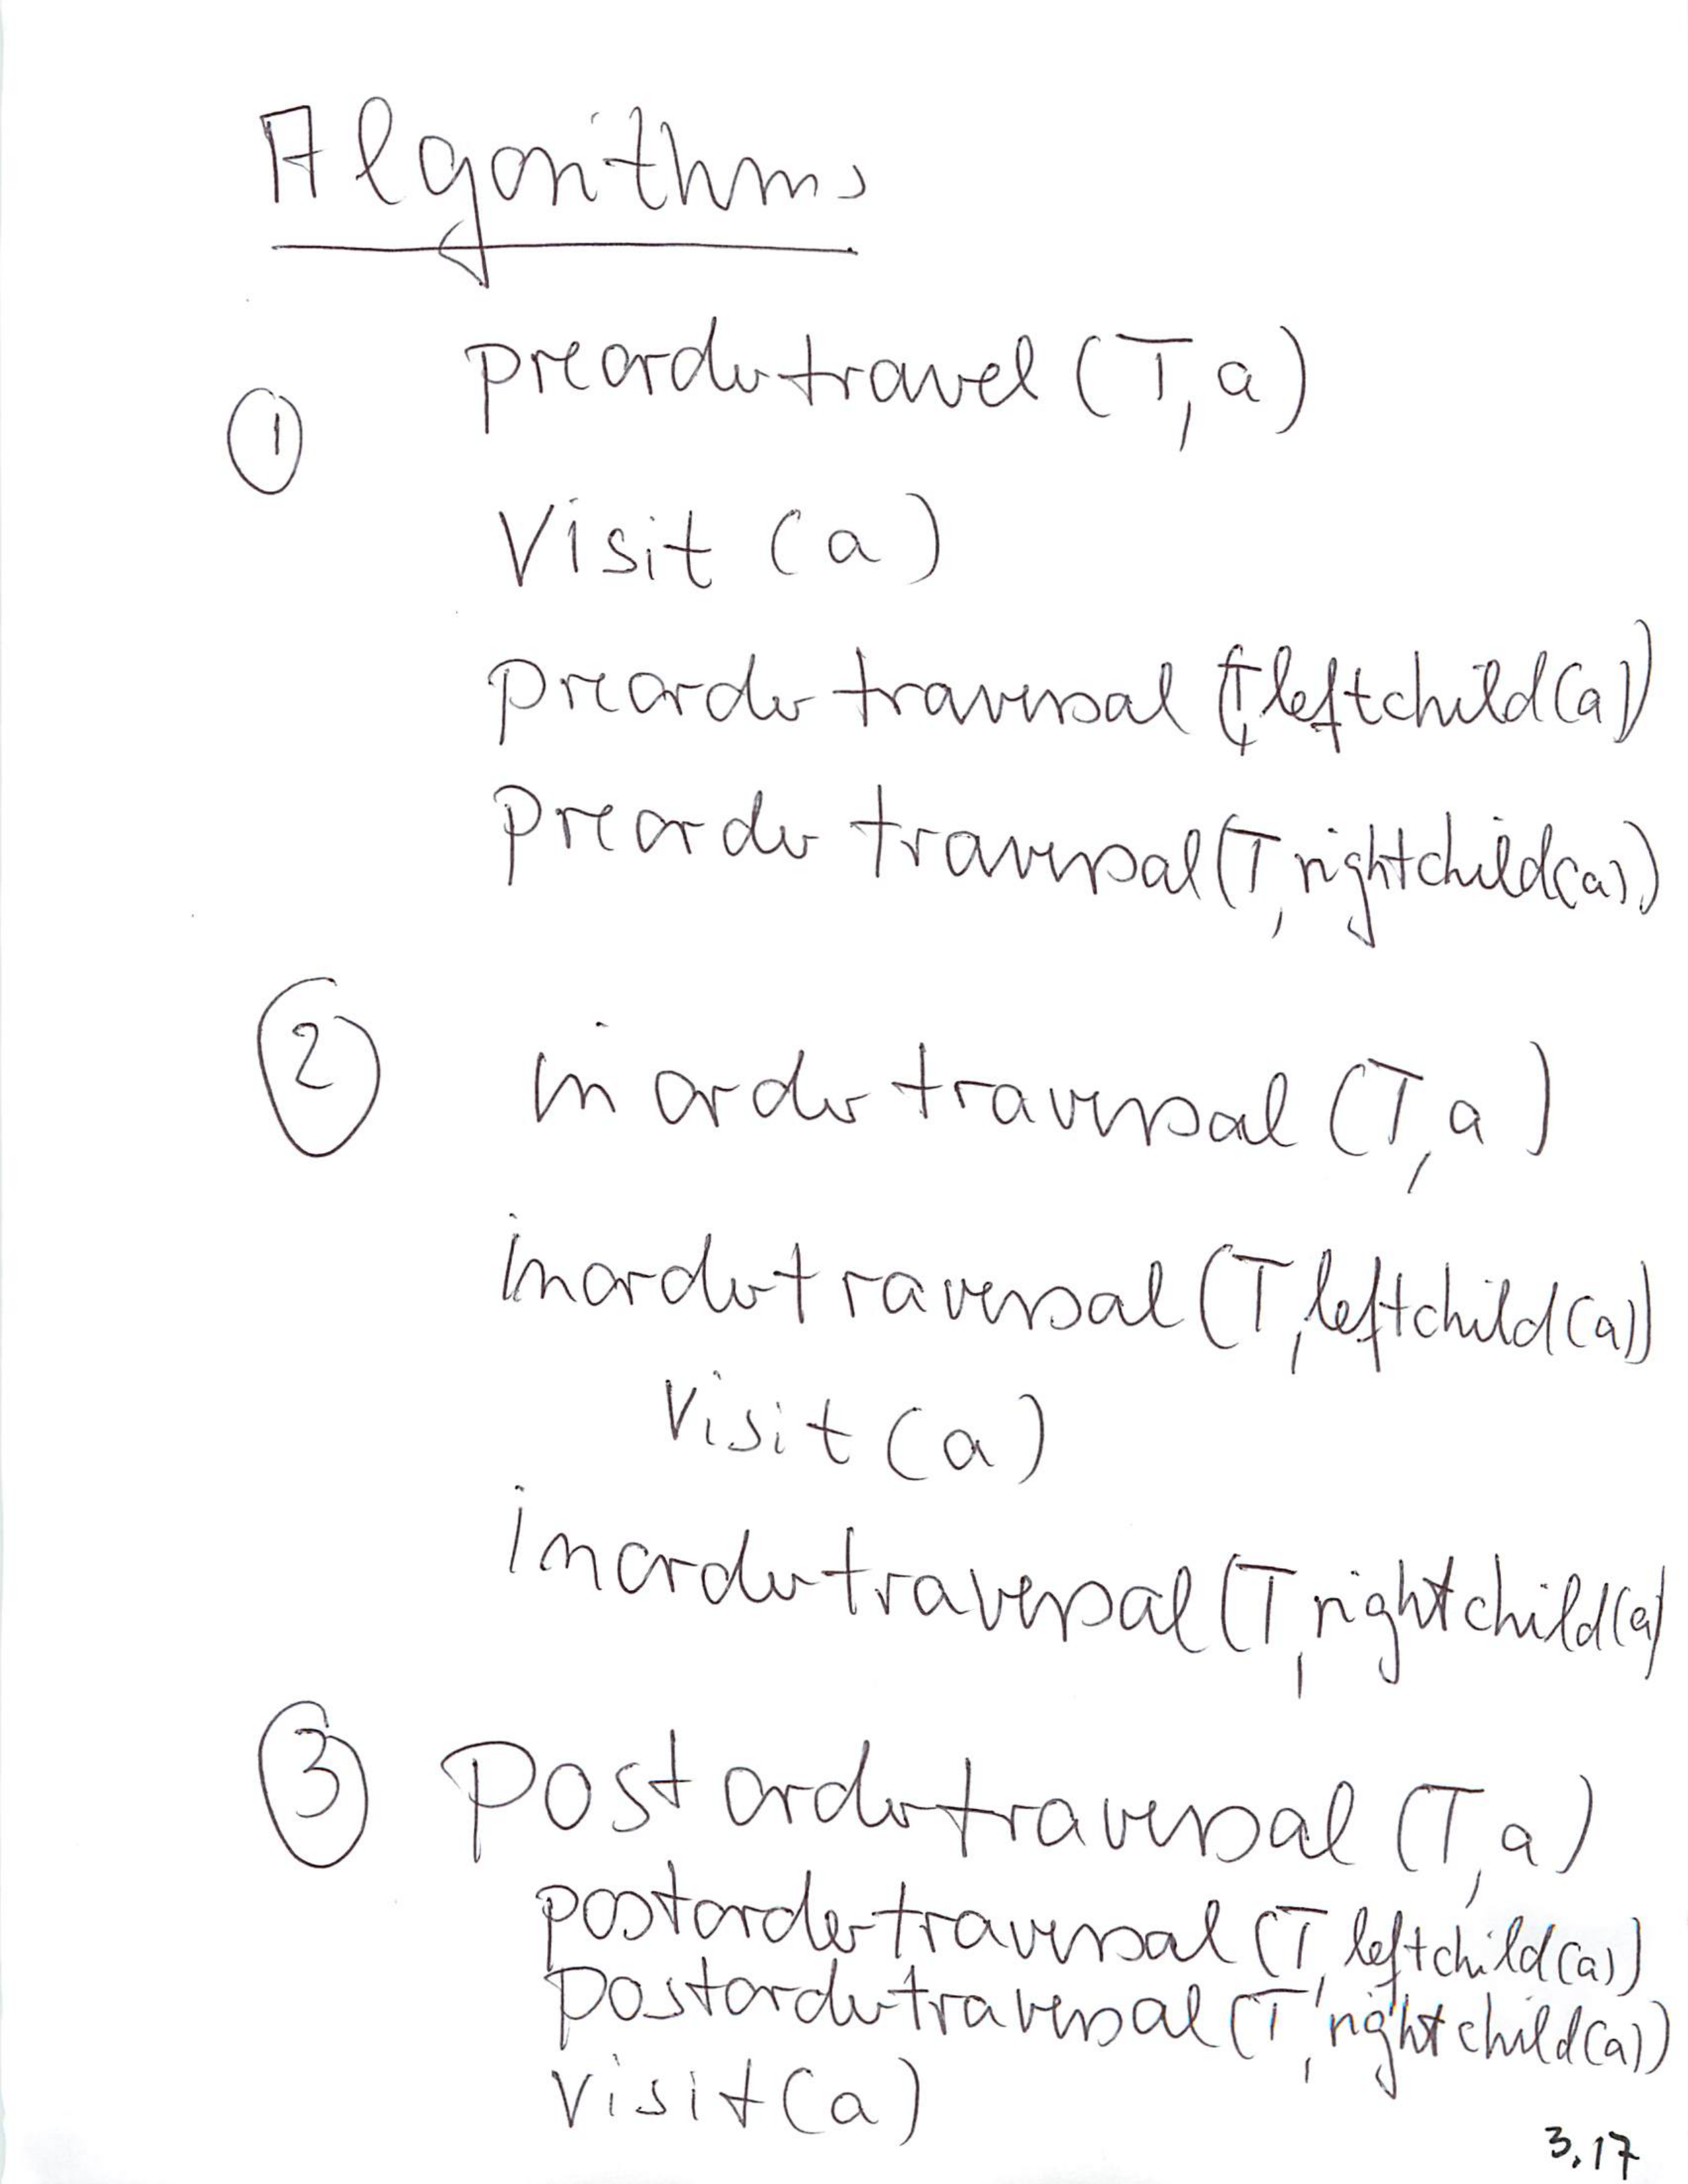 Algorithms
preordertravel (T, a)
①
Visit (a)
preorder traversal (T, leftchild(a))
Preorder traversal (T, rightchild(a))
② inorder traversal (T, a)
inordertraversal (T, leftchild(a))
Visit (a)
inordertraversal (T, rightchild(a)
③ Postordertraversal (T, a)
postordertraversal (T, leftchild(a))
postordertraversal (T, rightchild(a))
Visit (a)
3.17